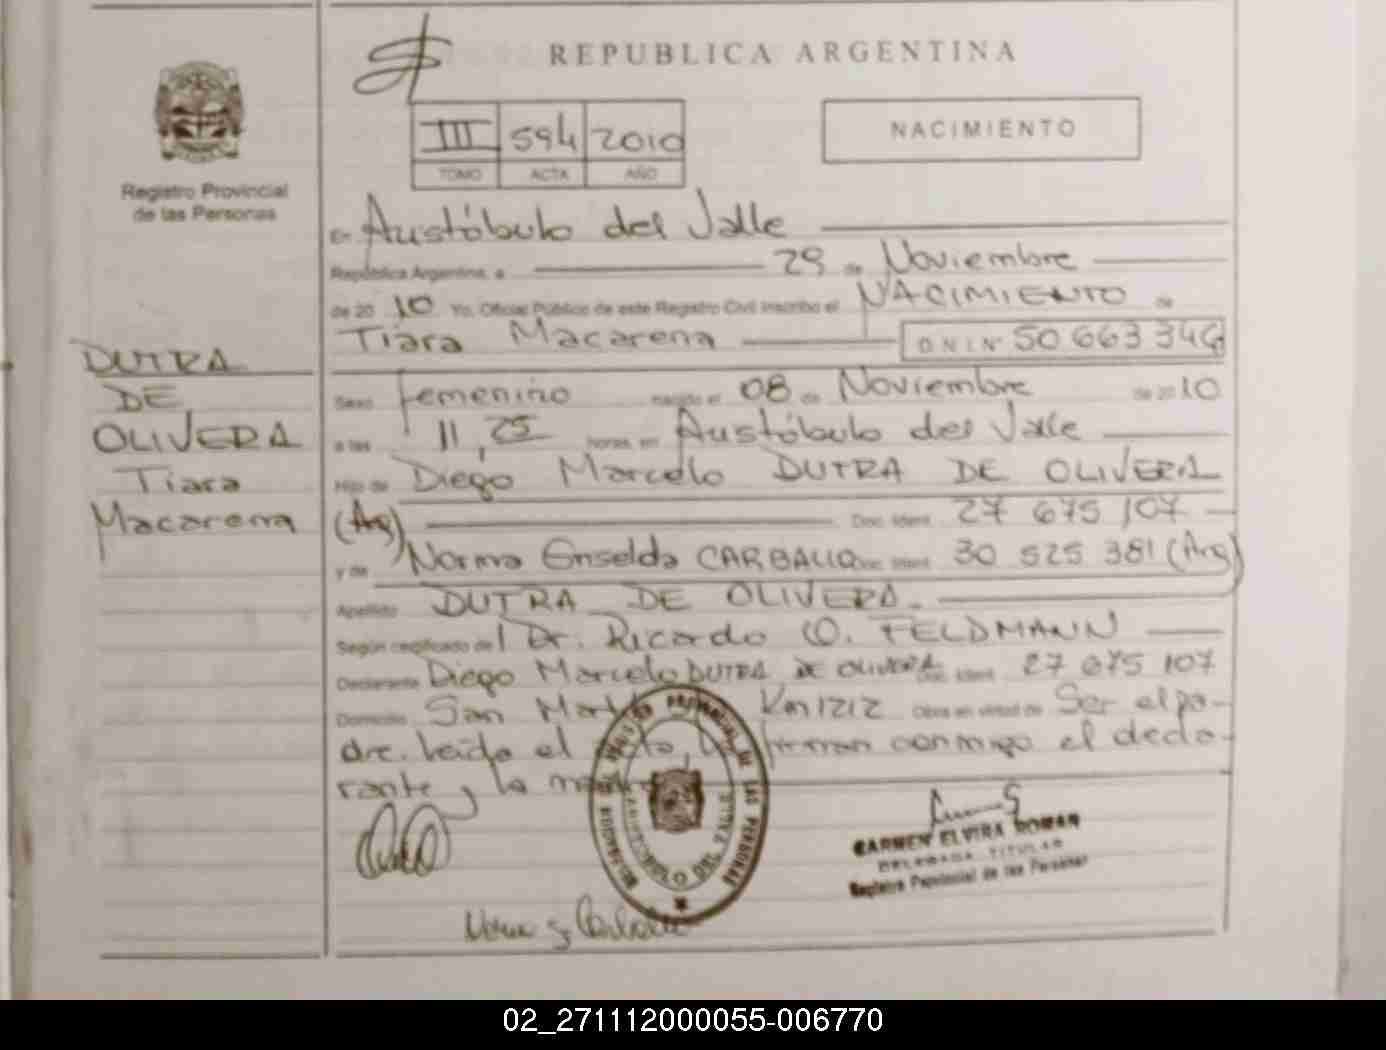 REPUBLICA ARGENTINA
III 594 2010
TOMO ACTA AÑO
NACIMIENTO
Registro Provincial
de las Personas
DUTRA
DE
OLIVERA
Tiara
Macarena
En Austóbulo del Valle
República Argentina, a 29 de Noviembre
de 2010 Yo, Oficial Público de este Registro Civil inscribo el NACIMIENTO de
Tiara Macarena D.N.I. Nº 50 663 346
Sexo femenino nacido el 08 de Noviembre de 2010
a las 11,25 horas, en Austóbulo del Valle
Hijo de Diego Marcelo DUTRA DE OLIVERA
(Arg) Doc. Ident. 27 675 107
y de Norma Griselda CARBALLO Doc. Ident. 30 525 381 (Arg)
Apellido DUTRA DE OLIVERA.
Según certificado del Dr. Ricardo O. FELDMANN
Declarante Diego Marcelo DUTRA DE OLIVERA Doc. Ident. 27 675 107
Domicilio San Km 1212 Obra en virtud de Ser el pa-
dre. Leída el firman conmigo el decla-
rante y la
CARMEN ELVIRA ROMAN
DELEGADA TITULAR
Registro Provincial de las Personas
02_271112000055-006770